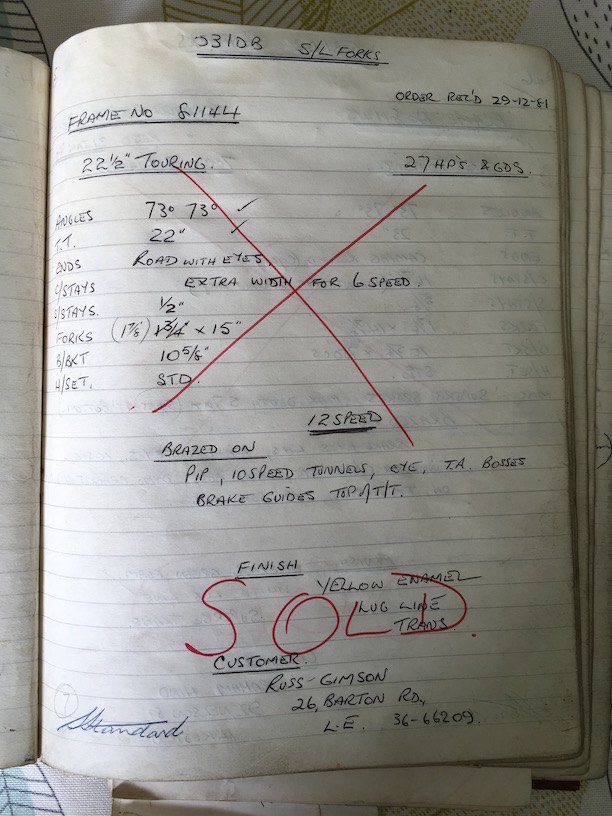 531DB S/L FORKS
ORDER REC'D 29-12-81
FRAME NO 81144
22 1/2" TOURING. 27 HP'S & GDS.
ANGLES 73° 73° ✓
T.T. 22" ✓
ENDS ROAD WITH EYES,
C/STAYS EXTRA WIDTH FOR 6 SPEED.
S/STAYS. 1/2"
FORKS (1 7/8) 1 3/4" x 15"
B/BKT 10 5/8"
H/SET. STD.
12 SPEED
BRAZED ON
PIP, 10 SPEED TUNNELS, EYE, T.A. BOSSES
BRAKE GUIDES TOP of T/T.
FINISH
YELLOW ENAMEL
LUG LINE
TRANS.
SOLD.
CUSTOMER.
RUSS GIMSON
26, BARTON RD,
L.E. 36-66209.
7
Standard